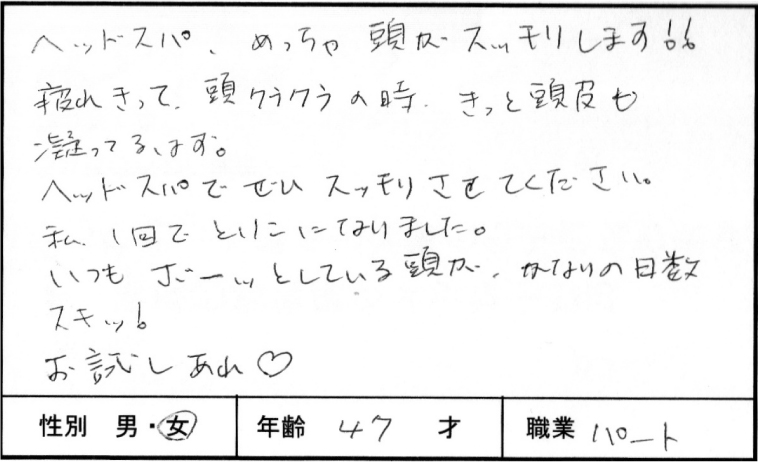 ヘッドスパ、めっちゃ頭がスッキリします!!
疲れきって、頭クラクラの時、きっと頭皮も
凝ってるはず。
ヘッドスパでぜひスッキリさせてください。
私、1回でとりこになりました。
いつもボーッとしている頭が、かなりの日数
スキッ!
お試しあれ♡
性別 男・女 年齢 47 才 職業 パート